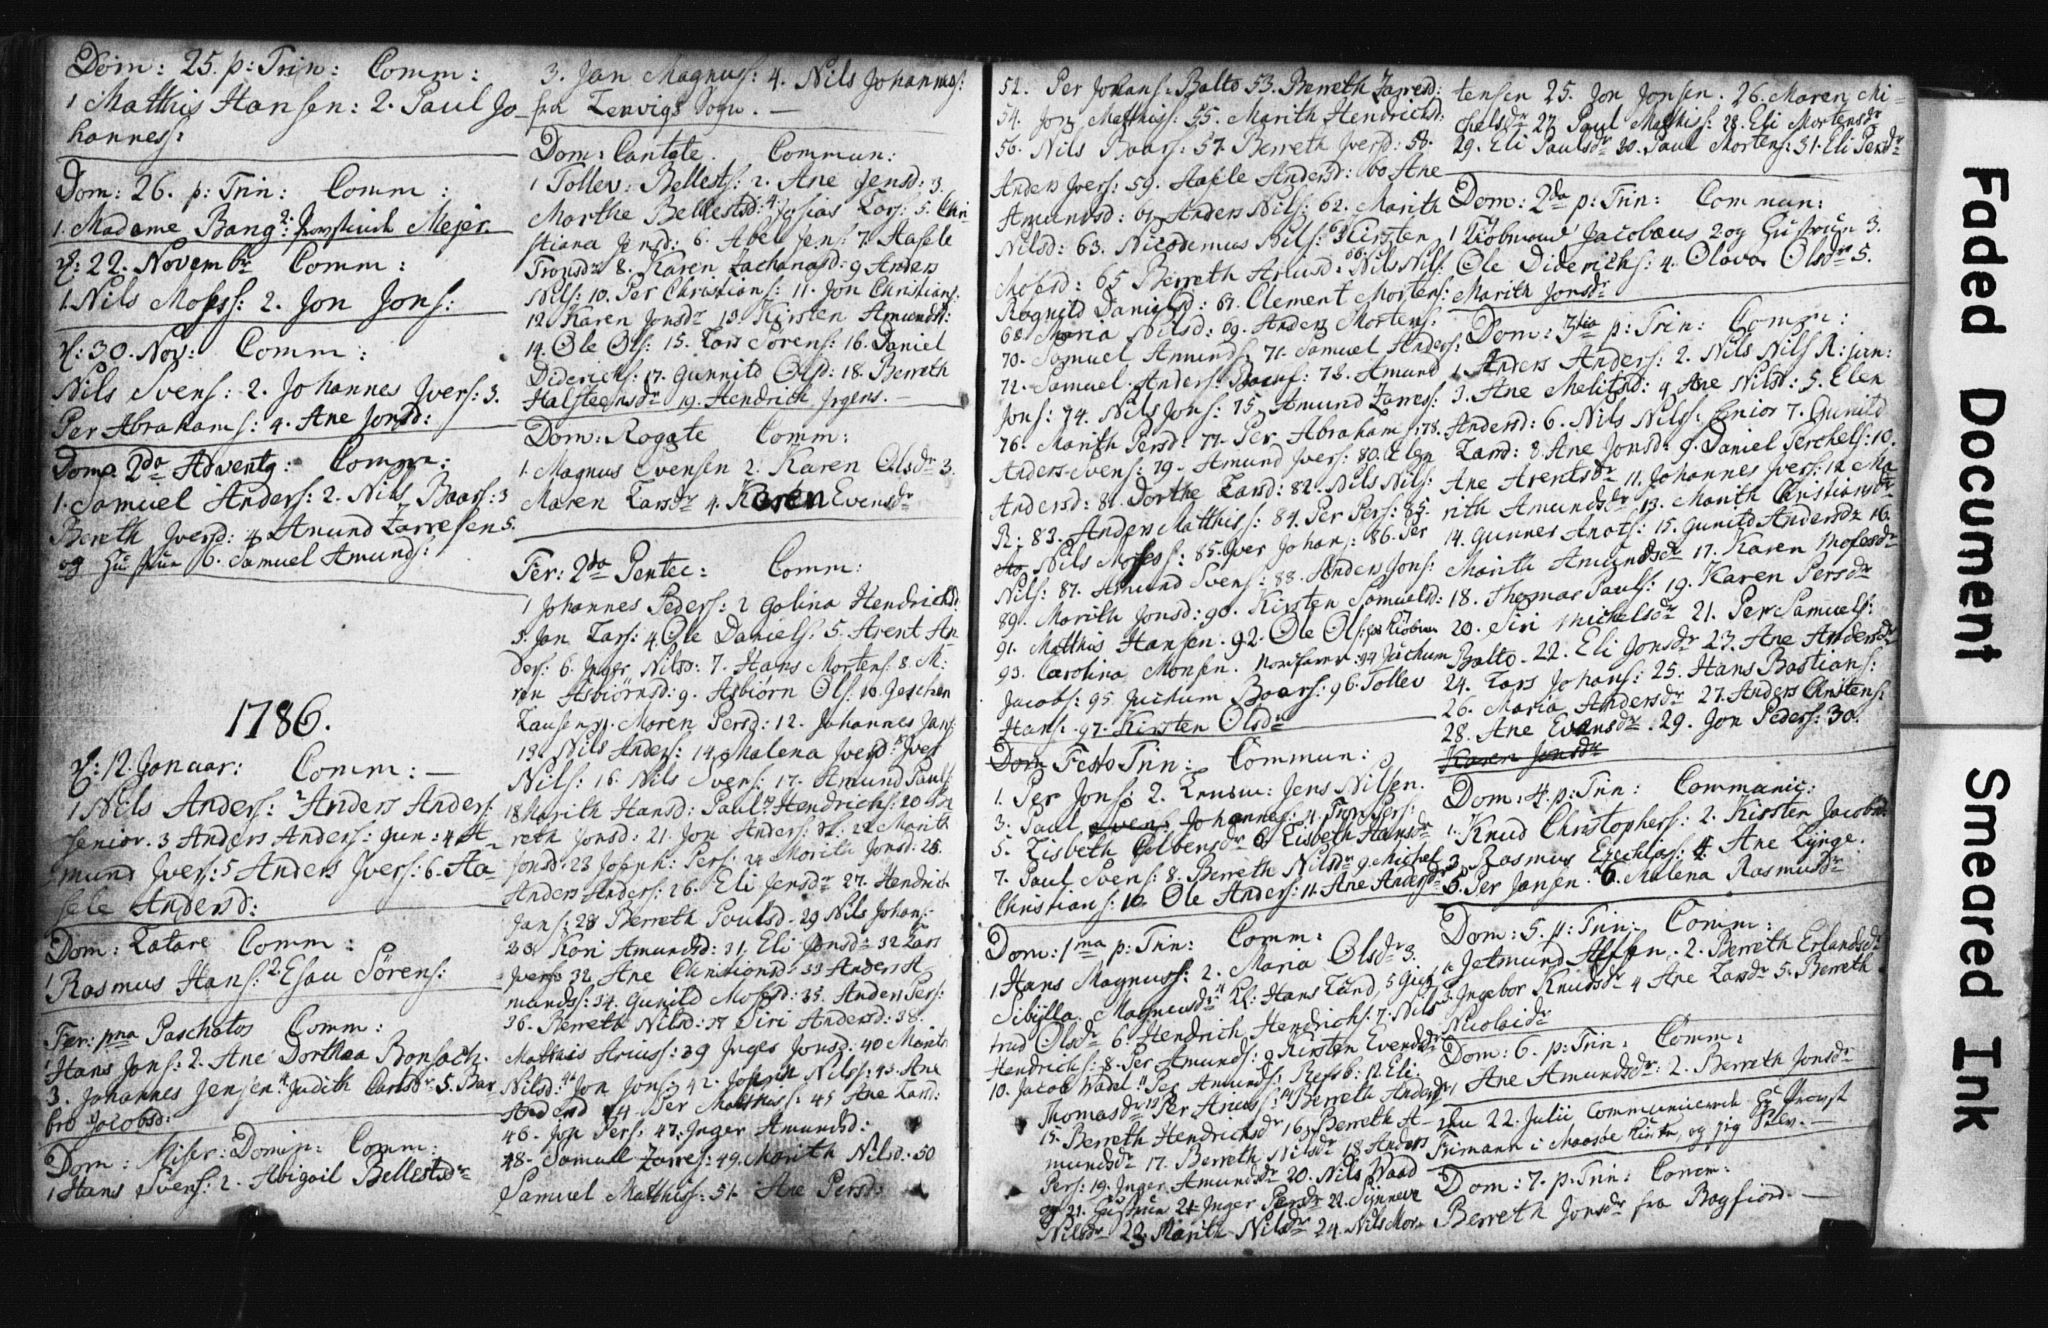 Dom: 25. p: Trin: Comm:
1 Matthis Hansen: 2. Paul Jo-
hannes:
Dom: 26. p: Trin: Comm:
1. Madame Bang 2: Mejer
d: 22. Novembr Comm:
1. Nils Moses: 2. Jon Jons:
d: 30. Nov: Comm:
Nils Svens: 2. Johannes Ivers: 3.
Per Abrahams: 4. Ane Jonsd:
Dom: 2da Advent9: Comm:
1. Samuel Anders: 2. Nils Baars: 3
Bereth Iversd: 4. Amund Zarresen 5.
og Hustrue 6. Samuel Amunds:
1786.
d: 12. Januar: Comm: —
1 Nils Anders: 2 Anders Anders:
senior. 3 Anders Anders: jun: 4 A-
mund Ivers: 5 Anders Ivers: 6. Aa-
sele Andersd:
Dom: Lætare Comm:
1 Rasmus Hans: 2. Esau Sörens:
Fer: pma Paschatos Comm:
1 Hans Jons: 2. Ane Dorthea Bonsach.
3. Johannes Jensen 4. Judith Carlsdr 5. Bar
bro Jacobsd:
Dom: Miser: Domin: Comm:
1 Hans Svens: 2. Abigail Bellestdr
3. Jan Magnus: 4. Nils Johannes:
fra Lenvigs Sogn. —
Dom: Cantate. Commun:
1 Tollev: Bellests: 2. Ane Jensd: 3.
Marthe Bellestsd: 4. Lars: 5. Chri
stiana Jensd: 6. Abel Jens: 7. Aasele
Tronsdr 8. Karen Zachariasd: 9 Anders
Nils: 10. Per Christians: 11. Jon Christians:
12. Karen Jonsdr 13. Kirsten Amundsd:
14. Ole Ols: 15. Lars Sörens: 16. Daniel
Diderichs: 17. Gunnild Olsd: 18. Berreth
Halsteensdr 19. Hendrich Jrgens. —
Dom: Rogate Comm:
1. Magnus Evensen 2. Karen Olsdr 3.
Maren Larsdr 4. Karen Evensdr
Fer: 2da Pentec: Comm:
1 Johannes Peders: 2 Golina Hendrichsd:
3. Jan Lars: 4. Ole Daniels: 5. Arent An
ders: 6. Inger Nilsd: 7. Hans Mortens: 8. M:
ren Asbiörnsd: 9. Asbiörn Ols: 10. Jeschen
Lausen 11. Maren Persd: 12. Johannes Jans:
13. Nils Anders: 14. Malena Iversd: 15 Iver
Nils: 16. Nils Svens: 17. Amund Pauls:
18 Marith Hansd: Paul 19 Hendrichs: 20 Be
reth Jonsd: 21. Jon Anders: 22 Marith
Jonsd: 23 Joseph: Pers: 24 Morith Jonsd: 25.
Anders Anders: 26. Eli Jensdr 27. Hendrich
Jans: 28 Berreth Poulsd. 29 Nils Johans:
30 Kari Amundsd: 31. Eli Jonsdr 32 Lars
Ivers 32. Ane Christiansd: 33 Anders A
munds: 34. Gunild Mosesd: 35. Anders Pers:
36. Berreth Nilsd: 37 Siri Andersd: 38.
Matthis Arius: 39 Inger Jonsd: 40 Marit:
Nilsd: 41 Jon Jons: 42. Joseph Nils: 43. Ane
Andersd 44 Per Matthis: 45 Ane Larsd:
46. Jon Pers: 47. Inger Amundsd:
48. Samuel Zarres: 49. Morith Nilsd. 50
Samuel Matthis: 51. Ane Persd:
52. Per Johans: Balto 53. Berreth Zarresd:
54. Jon Matthis: 55. Marith Hendrichsd:
56. Nils Baars: 57. Berreth Iversd: 58.
Anders Ivers: 59. Aasele Andersd: 60 Ane
Amundsd: 61 Anders Nils: 62. Marith
Nilsd: 63. Nicodemus Nils: 64 Kirsten
Mosesd: 65 Berreth Ariusd: 66 Nils Nils:
Rognild Danielsd: 67. Clement Mortens:
68. Maria Nilsd: 69. Anders Mortens:
70. Samuel Amunds: 71. Samuel Anders:
72. Samuel Anders: 73. Amund
Jons: 74. Nils Jons: 75. Amund Zarres:
76. Marith Persd: 77. Per Abrahams: 78.
Anders Svens: 79. Amund Ivers: 80. Elen
Andersd: 81. Dorthe Larsd: 82. Nils Nils:
R: 83. Anders Matthis: 84. Per Pers: 85.
Nils Moses: 85. Iver Johans: 86. Per
Nils: 87. Amund Svens: 88. Anders Jons:
89. Morith Jonsd: 90. Kirsten Samuelsd:
91. Matthis Hansen. 92. Ole Ols:
93. Carolina Monsen. 94 Juchum
Jacobs: 95 Juchum Baars: 96. Tollev
Hans: 97. Kirsten Olsdr
Dom Festo Trin: Commun:
1. Per Jons: 2. Jens Nilsen.
3. Paul Svens: Johannes: 4. Tron Pers:
5. Lisbeth Colbensdr 6. Lisbeth Hansdr
7. Paul Svens: 8. Berreth Nilsdr 9. Michel
Christians: 10. Ole Anders: 11. Ane Andersdr
Dom: 1ma p: Trin: Comm:
1. Hans Magnus: 2. Maria Olsdr 3.
Sibylla Magnusdr 4. Hans Lund, 5 Gier
trud Olsdr 6. Hendrich Hendrichs: 7. Nils
Hendrichs: 8. Per Amunds: 9. Kirsten Evensdr
10. Jacob Wadel 11 Per Amunds: Ressb: 12 Eli
Thomasdr 13 Per Arius: 14 Berreth Andersdr
15. Berreth Hendrichsdr 16. Berreth A-
mundsdr 17. Berreth Nilsdr 18 Anders
Pers: 19. Inger Amundsdr 20. Nils Waad
og 21. Hustrue 21 Inger Persdr 22. Synneve
Nilsdr 23. Marith Nilsdr 24. Nils Mor-
tensen 25. Jon Jonsen. 26. Maren Mi-
chelsdr 27 Paul Mathis: 28. Eli Mortensdr
29. Eli Paulsdr 30. Paul Mortens: 31. Eli Persdr
Dom: 2da p: Trin: Commun:
1 Kiöbmand Jacobæus 2 og Hustrue 3.
Ole Diderichs: 4. Olava Olsdr 5.
Marith Jonsdr
Dom: 3tia p: Trin: Comm:
1 Anders Anders: 2. Nils Nils R: jun:
3. Ane Melitsd: 4 Ane Nilsd: 5. Elen
Andersd: 6. Nils Nils: Senior 7. Gunild
Larsd: 8. Ane Jonsd: 9. Daniel Perchels: 10.
Ane Arentsdr 11. Johannes Ivers: 12 Ma
rith Amundsdr 13. Marith Christiansdr
14. Gunner Anots: 15. Gunild Andersdr 16.
Marith Amundsdr 17. Karen Mosesdr
18. Thomas Pauls: 19. Karen Persdr
20. Siri Michelsdr 21. Per Samuels:
Balto. 22. Eli Jonsdr 23. Ane Andersdr
24. Lars Johans: 25. Hans Bastians:
26. Maria Andersdr 27. Anders Christens:
28. Ane Evensdr. 29. Jon Peders: 30.
Karen Jonsdr
Dom: 4. p: Trin: Communic:
1. Knud Christophers: 2. Kirsten Jacobsd:
3. Rasmus Ezechias: 4. Ane Lÿnge.
5. Per Jansen. 6. Malena Rasmusdr
Dom: 5. p: Trin: Comm:
1. Jetmund Affsen. 2. Berreth Erlandsdr
3. Ingebor Knudsdr 4 Ane Larsdr 5. Berreth
Nicolaidr
Dom: 6. p: Trin: Comm:
1 Ane Amundsdr: 2. Berreth Jonsdr
den 22. Julii communicerede Hr Provst
Frimann i Maasöe Kirke og jeg —
Dom: 7. p: Trin: Comm:
Berreth Jonsdr fra Bagfiord. —
Faded Document
Smeared Ink